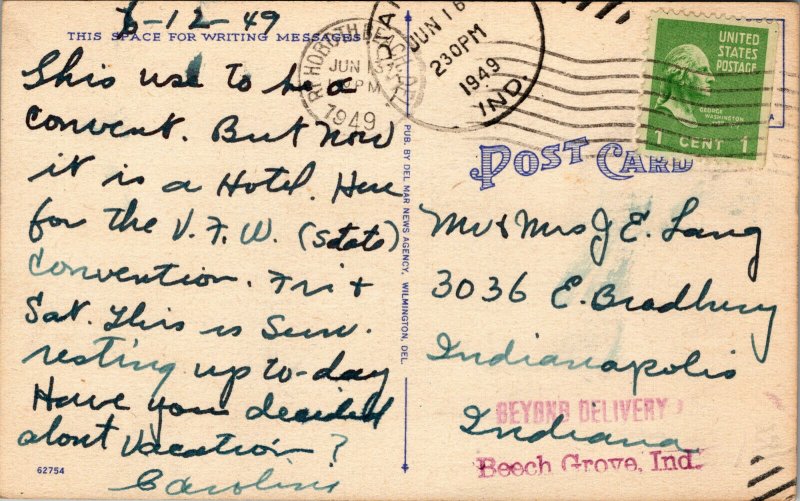 6-12-49
THIS SPACE FOR WRITING MESSAGES
This use to be a
convent. But now
it is a Hotel. Here
for the V.F.W. (State)
Convention. Fri +
Sat. This is Sun.
resting up to-day
Have you decided
about vacation?
Caroline
62754
PUB. BY DEL MAR NEWS AGENCY, WILMINGTON, DEL.
REHOBOTH BEACH
JUN
PM
1949
JUN 16
230PM
1949
IND.
UNITED
STATES
POSTAGE
GEORGE
WASHINGTON
1 CENT 1
POST CARD
Mr & Mrs J E. Lang
3036 E. Bradbury
Indianapolis
Indiana
BEYOND DELIVERY
Beech Grove, Ind.